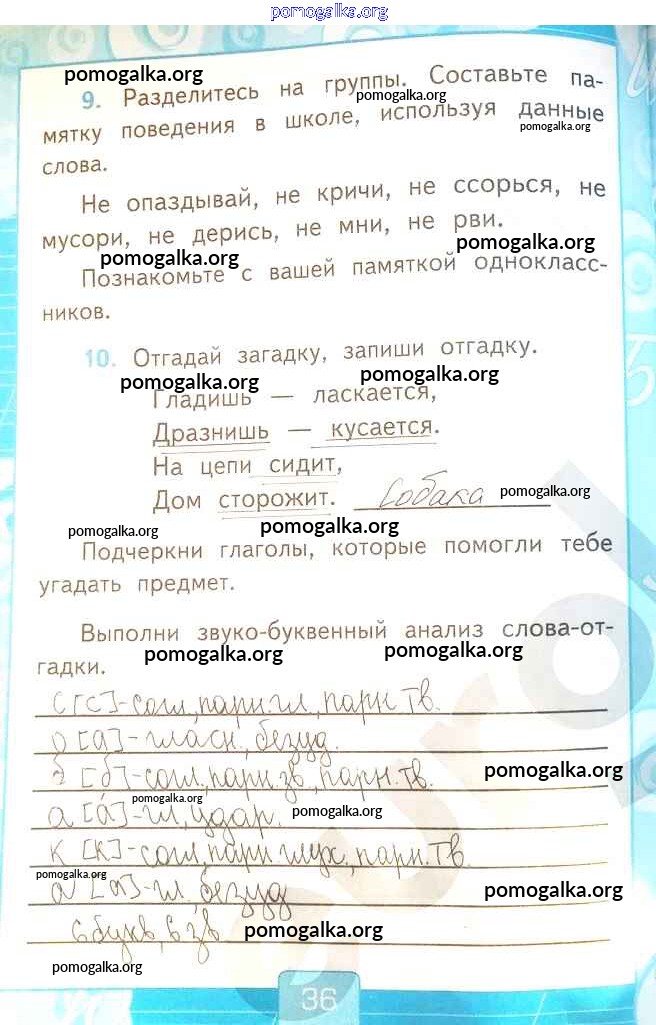 pomogalka.org
pomogalka.org
9. Разделитесь на группы. Составьте па-
pomogalka.org
мятку поведения в школе, используя данные
pomogalka.org
слова.
Не опаздывай, не кричи, не ссорься, не
мусори, не дерись, не мни, не рви.
pomogalka.org
pomogalka.org
Познакомьте с вашей памяткой однокласс-
ников.
10. Отгадай загадку, запиши отгадку.
pomogalka.org pomogalka.org
Гладишь — ласкается,
Дразнишь — кусается.
На цепи сидит,
Дом сторожит. Собака pomogalka.org
pomogalka.org pomogalka.org
Подчеркни глаголы, которые помогли тебе
угадать предмет.
Выполни звуко-буквенный анализ слова-от-
pomogalka.org pomogalka.org
гадки.
с [с]-согл, парн. гл, парн тв.
о [а]-гласн, безуд.
б [б]-согл, парн. зв, парн. тв. pomogalka.org
pomogalka.org
а [á]-гл, удар. pomogalka.org
к [к]-согл, парн глух, парн. тв.
pomogalka.org
а [а]-гл, безуд pomogalka.org
6 букв, 6 зв pomogalka.org
pomogalka.org
36